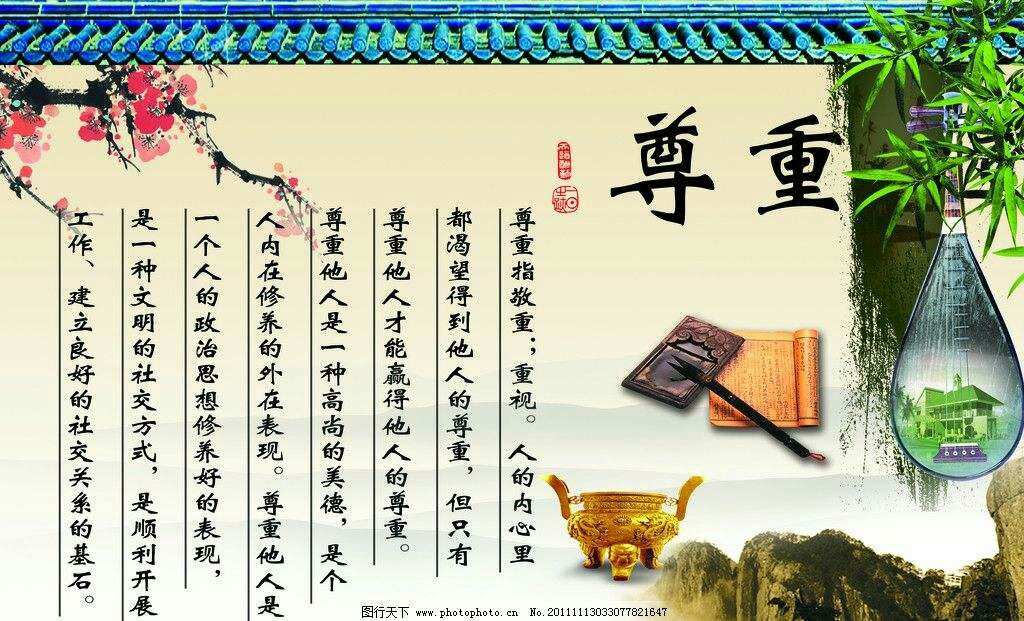 尊重
尊重指敬重；重视。人的内心里
都渴望得到他人的尊重，但只有
尊重他人才能赢得他人的尊重。
尊重他人是一种高尚的美德，是个
人内在修养的外在表现。尊重他人是
一个人的政治思想修养好的表现，
是一种文明的社交方式，是顺利开展
工作、建立良好的社交关系的基石。
图行天下 www.photophoto.cn No.20111113033077821647